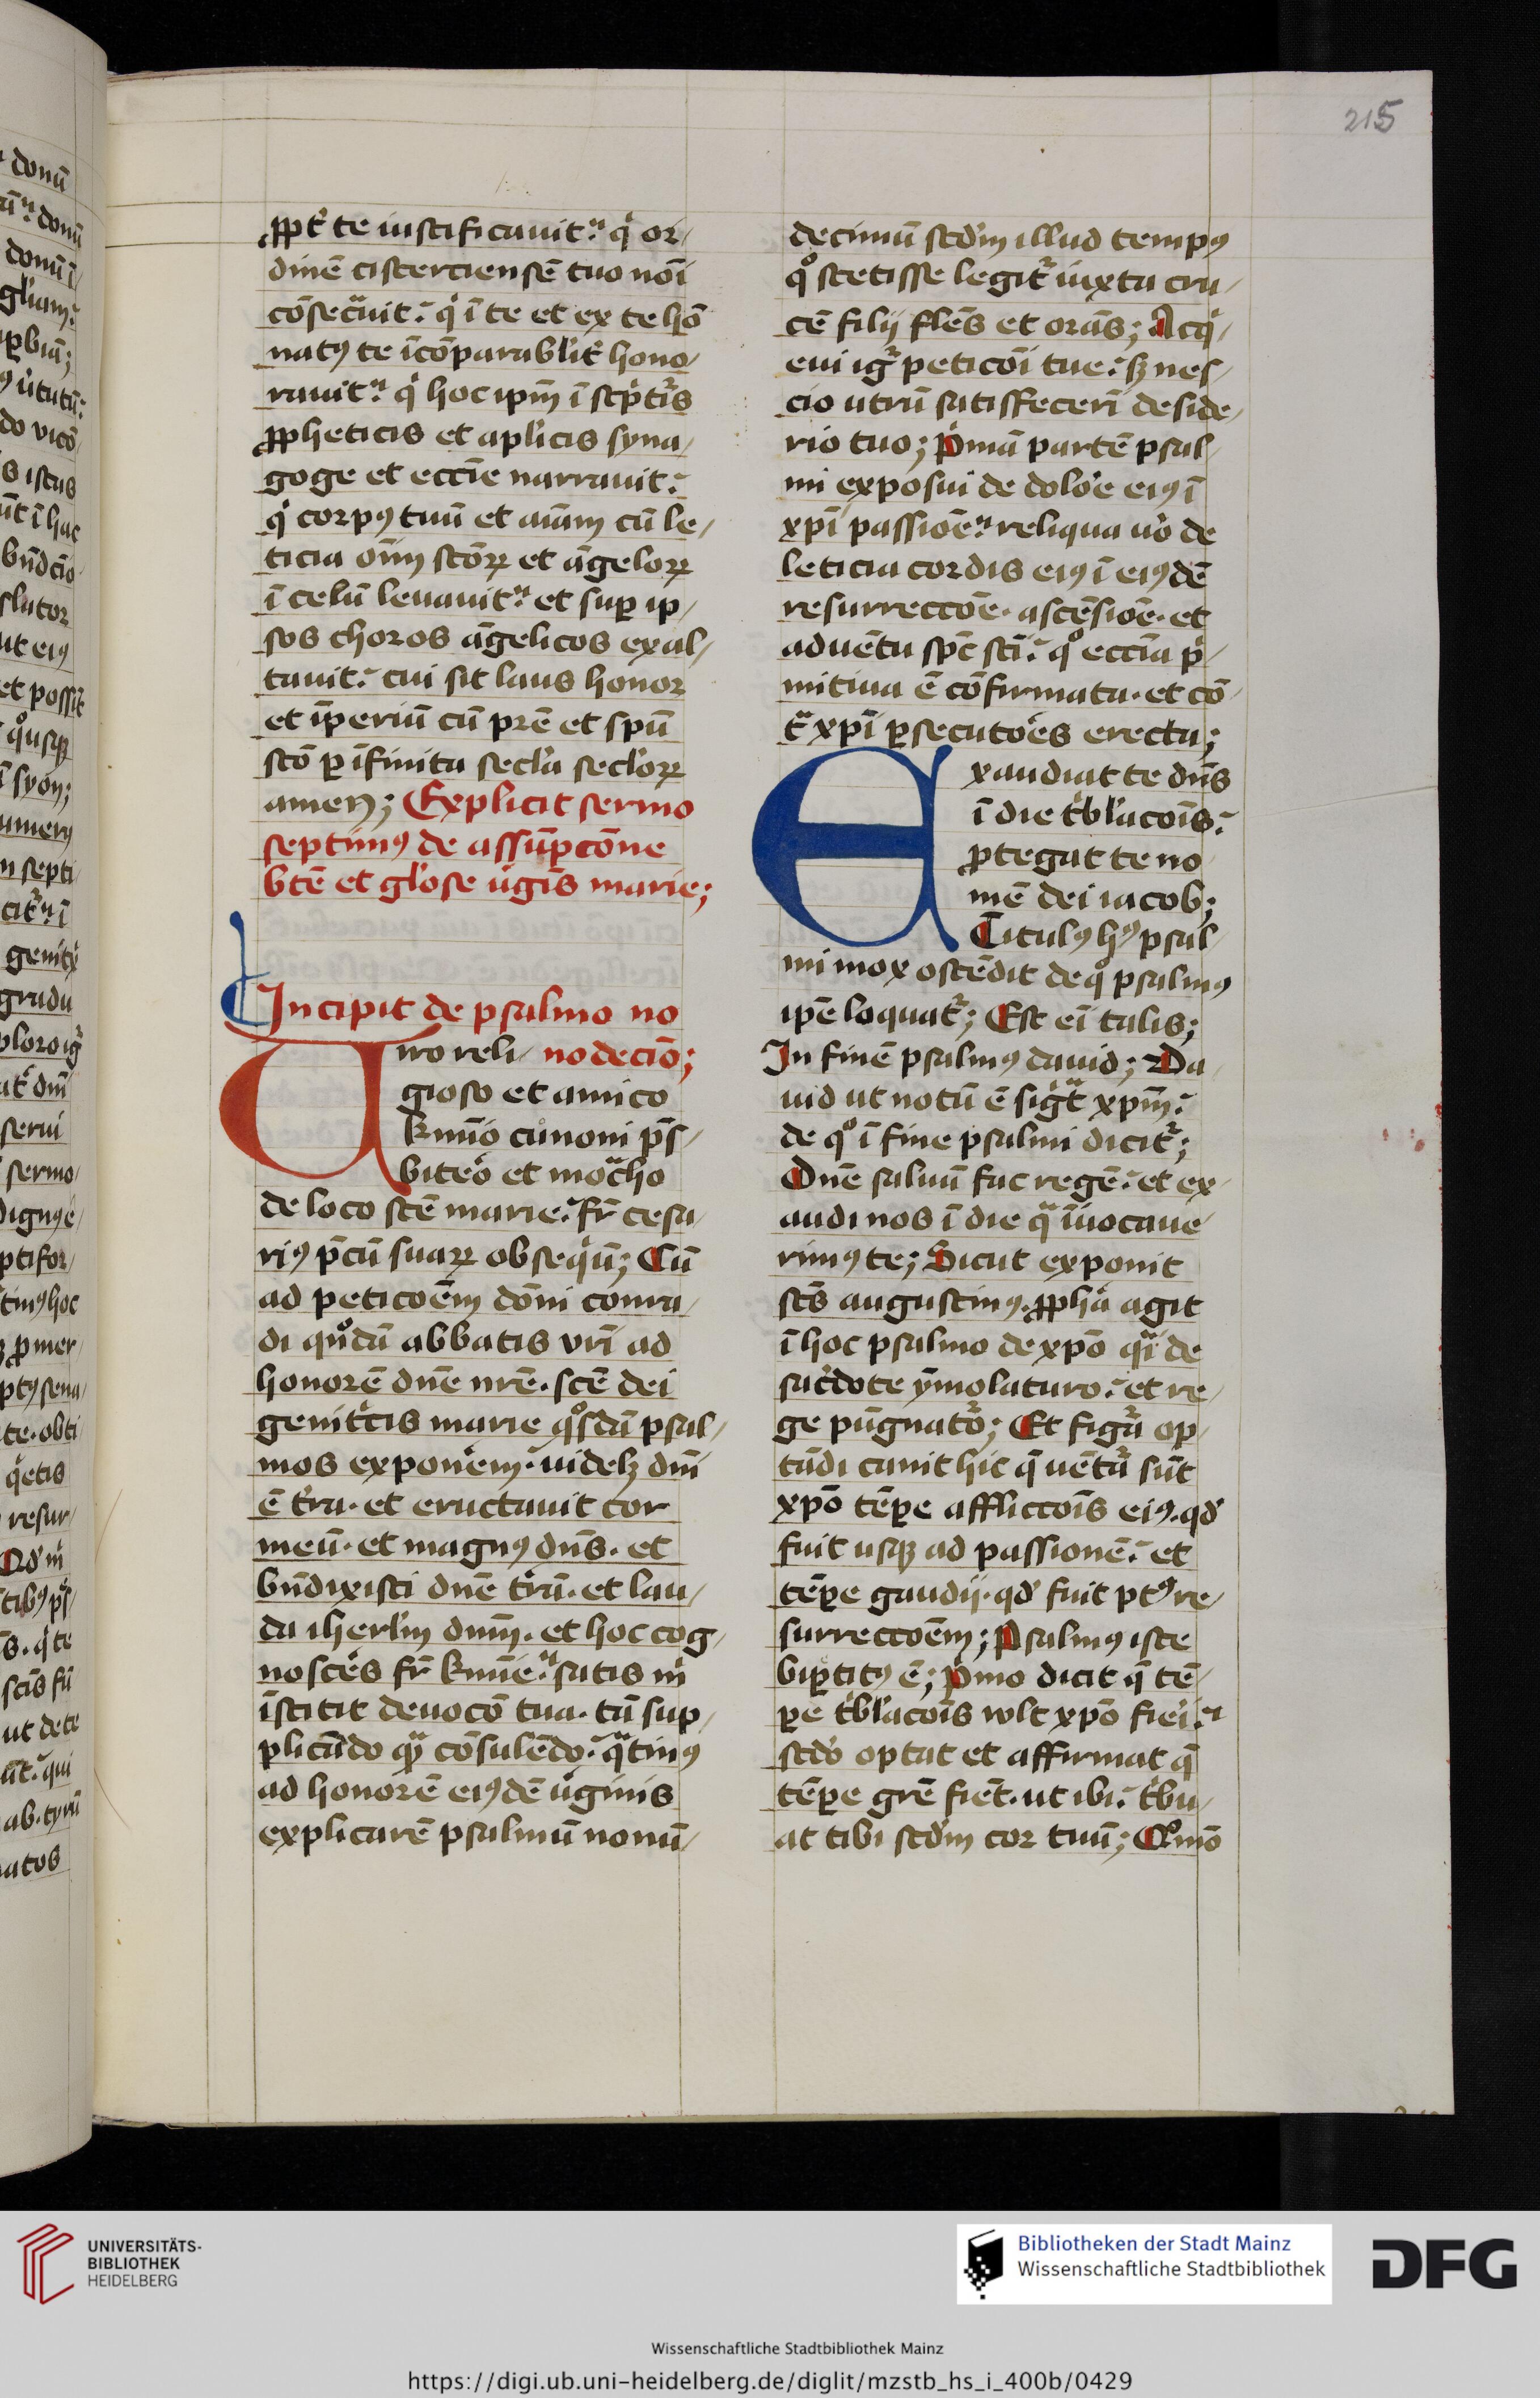 215
ꝓpt̉ te iustificauit. qͥ or-
dinē cisterciensē tuo nōi
cōsecͣuit. qͥ ī te et ex te hō
natꝰ te īcōparabl̉it̉ hono-
rauit. qͥ hoc ip̄m ī sc̉ptˀis
ꝓpheticis et apl̉icis syna-
goge et eccīe narrauit.
qͥ corpꝰ tuū et aīam cū le-
ticia oīm sc̄oꝝ et āgeloꝝ
ī celū leuauit. et suꝑ ip-
sos choros āgelicos exal-
tauit. cui sit laus honor
et īperiū cū pr̄e et spū
sc̄o ꝑ īfinita secl̉a secl̉oꝝ
amen; Explicit sermo
septimꝰ de assūpc̄one
bt̄e et gl̉ose ūgīs marie;
Incipit de psalmo no
nodecīo;
Uiro reli-
gioso et amico
kr̄mo canoni p̄s-
biteͦo et moͣcho
de loco sc̄e marie. fr̄ cesa-
riꝰ p̄cū suaꝝ obseqͥū; Cū
ad peticōem dōni conra-
di qͦndā abbatis vr̄i ad
honorē dn̄e nr̄e. sc̄e dei
genitͥcis marie qͦsdā psal-
mos exponeͤm. uidelꝫ dn̄i
ē tr̄a. et eructauit cor
meū. et magnꝰ dn̄s. et
bn̄dixisti dn̄e tr̄ā. et lau-
da iherl̉m dnm̄. et hoc cog-
noscēs fr̄ kr̄me. satis mͥ
īstitit deuoc̄o tua. tā sup-
plicādo qͣꝫ cōsulēdo. qͣtinꝰ
ad honorē eiꝰdē ūginis
explicarē psalmū nonū-
decimū scd̉m illud tempꝰ
qͦ stetisse legitˀ iuxta cru-
cē filij flēs et orās; Acqͥ-
eui igˀ peticōi tue. sꝫ nes-
cio utrū satisfecerī deside-
rio tuo; Pͥmā partē psal-
mi exposui de dolo̍e eiꝰ ī
xp̄i passiōe. reliqua ūo de
leticia cordis eiꝰ ī eiꝰdē
resurrecc̄oe. ascēsiōe. et
aduētu sp̄c sc̄i. qͦ eccīa pͥ-
mitiua ē cōfirmata. et cō-
tͣ xp̄i ꝑsecuto̍es erecta;
Exaudiat te dn̄s
ī die tͥbl̉acōis.
ꝓtegat te no
mē dei iacob;
Titulꝰ hꝰ psal-
mi mox ostēdit de qͦ psalmꝰ
ip̄e loquatˀ; Est eī talis;
In finē psalmꝰ dauid; Da-
uid ut notū ē sigͥtͣ xp̄m.
de qͦ ī fine psalmi dicitˀ;
Dn̄e saluū fac regē. et ex-
audi nos ī die qͣ īuocaue-
rimꝰ te; Sicut exponit
sc̄s augustinꝰ. ꝓphͣ agit
ī hoc psalmo de xp̄o qͣi de
sac̉dote ȳmolaturo. et re-
ge pūgnatoˀ; Et figͣ op-
tādi canit hic q̄ uētˀa sūt
xp̄o tēꝑe afflicc̄ois eiꝰ. qd̉
fuit usqꝫ ad passionē. et
tēꝑe gaudij. qd̉ fuit ptꝰ re-
surrecc̄oem; Psalmꝰ iste
biꝑtitꝰ ē; Pͥmo dicit q̄ tē-
ꝑe tͥbl̉acōis wlt xp̄o fie̍i.
scd̉o optat et affirmat q̄
tēꝑe gr̄e fiēt. ut ibi. tͥbu-
at tibi scd̉m cor tuū; Qͦmō
UNIVERSITÄTS-
BIBLIOTHEK
HEIDELBERG
Bibliotheken der Stadt Mainz
Wissenschaftliche Stadtbibliothek
DFG
Wissenschaftliche Stadtbibliothek Mainz
https://digi.ub.uni-heidelberg.de/diglit/mzstb_hs_i_400b/0429